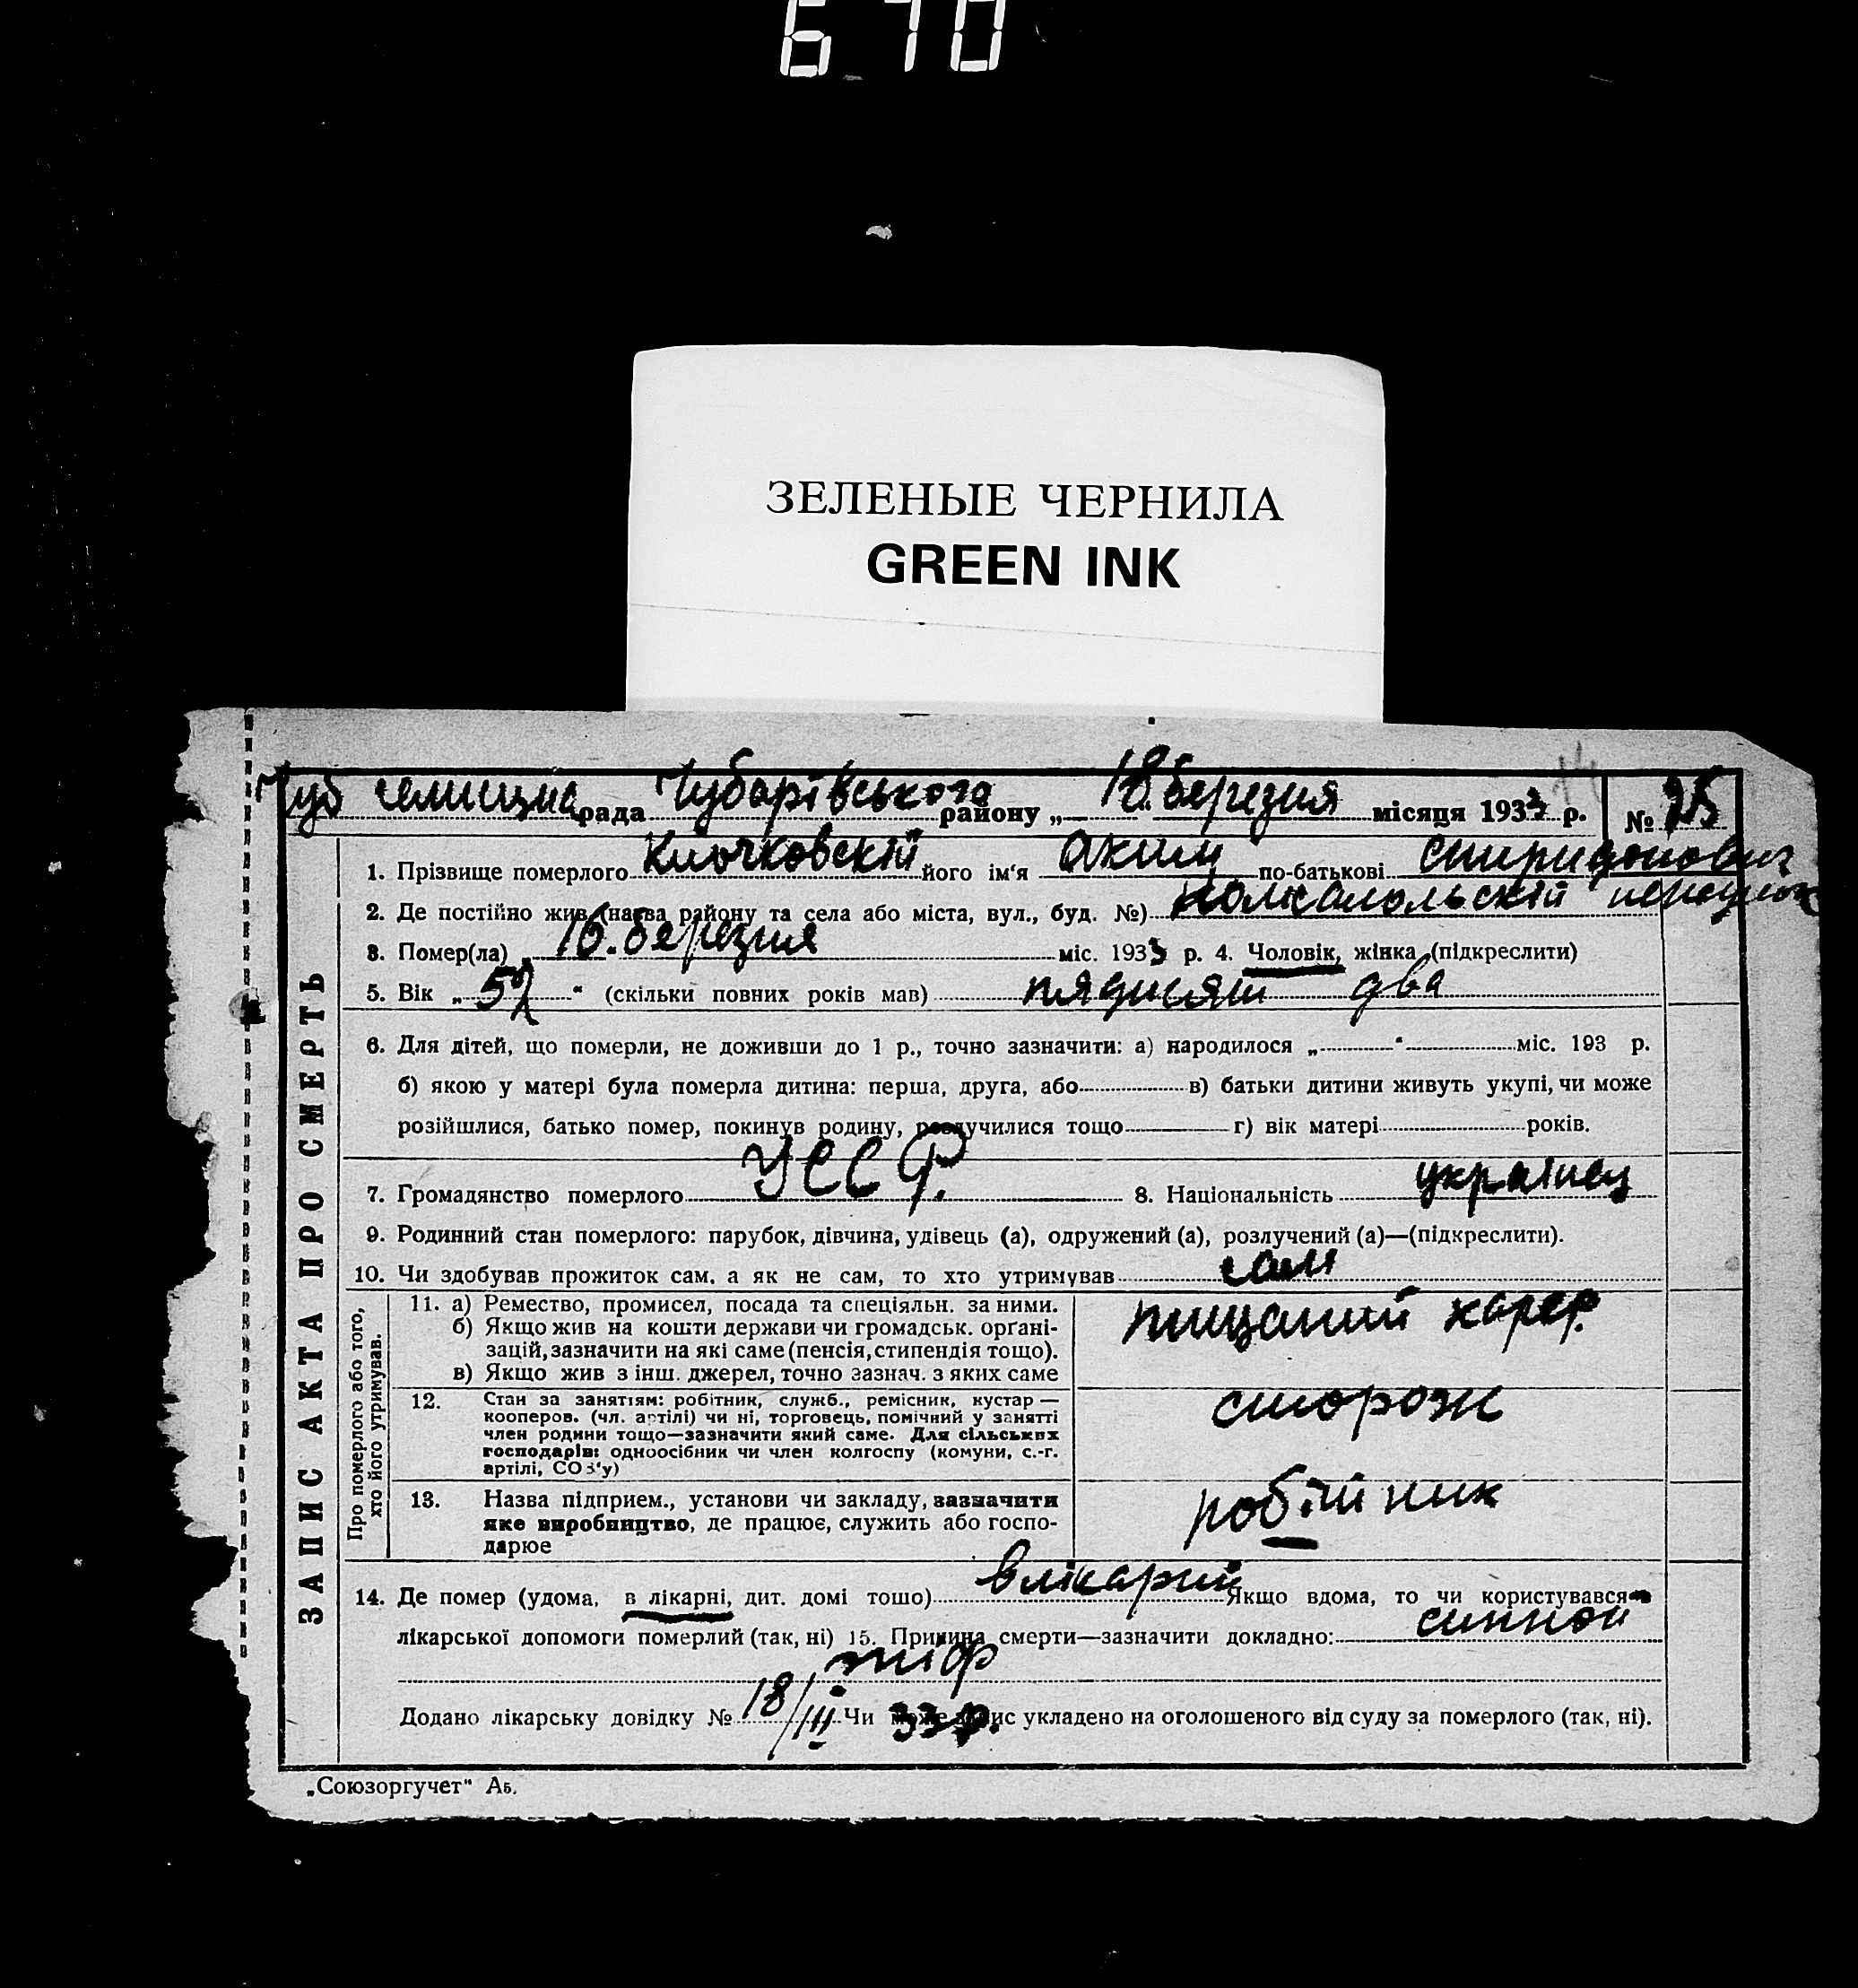 670
ЗЕЛЕНЫЕ ЧЕРНИЛА
GREEN INK
Чуб селищна рада Чубарівського району „ 18. березня місяця 1933 р. №
1. Прізвище померлого Клочковскій його ім'я Аким по-батькові Спиридонович
2. Де постійно жив (назва району та села або міста, вул., буд. №)
3. Помер(ла) 16. березня міс. 1933 р. 4. Чоловік, жінка (підкреслити)
5. Вік „ 52 " (скільки повних років мав) пядисят два
6. Для дітей, що померли, не доживши до 1 р., точно зазначити: а) народилося „ " міс. 193 р.
б) якою у матері була померла дитина: перша, друга, або в) батьки дитини живуть укупі, чи може
розійшлися, батько помер, покинув родину, розлучилися тощо г) вік матері років.
7. Громадянство померлого УССР. 8. Національність українец
9. Родинний стан померлого: парубок, дівчина, удівець (а), одружений (а), розлучений (а)—(підкреслити).
10. Чи здобував прожиток сам, а як не сам, то хто утримував сам
11. а) Ремество, промисел, посада та спеціяльн. за ними.
б) Якщо жив на кошти держави чи громадськ. орґані-
зацій, зазначити на які саме (пенсія, стипендія тощо).
в) Якщо жив з інш. джерел, точно зазнач. з яких саме
карєр.
12. Стан за занятям: робітник, служб., ремісник, кустар —
кооперов. (чл. артілі) чи ні, торговець, помічний у занятті
член родини тощо—зазначити який саме. Для сільських
господарів: одноосібник чи член колгоспу (комуни, с.-г.
артілі, СОЗ'у)
сторож
13. Назва підприєм., установи чи закладу, зазначити
яке виробництво, де працює, служить або госпо-
дарює
робітник
Про померлого або того,
хто його утримував.
14. Де помер (удома, в лікарні, дит. домі тощо) в лікарни Якщо вдома, то чи користувався
лікарської допомоги померлий (так, ні) 15. Причина смерти—зазначити докладно: сипной
тіф
Додано лікарську довідку № 18/III 33 р. Чи може запис укладено на оголошеного від суду за померлого (так, ні).
ЗАПИС АКТА ПРО СМЕРТЬ
„Союзоргучет" А5.